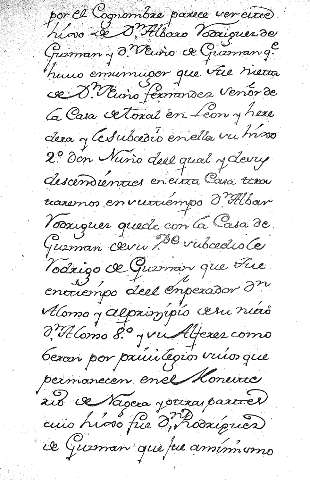 por el Cognombre parece ser este
hixo de Dn. Albaro Rodriguez de
Guzman y Dn. Nuño de Guzman qe.
huuo en su muger que fue nieta
de Dn. Nuño fernandez senor de
la Casa de toral en Leon y here
dera y le subcedio en ella su hixo
2º don Nuño deel qual y de sus
descendientes en esta Casa tra
taremos en su tiempo Dn. Albar
Rodriguez quedo con la Casa de
Guzman de su Pe. subcediole
Rodrigo de Guzman que fue
en tiempo deel enperador Dn
Alonso y al prinçipio de su nieto
Dn. Alonso 8º y su Alferes como
beran por priuilegios suios que
permanecen en el Moneste
rio de Naxera y otras partes
cuio hixo fue Dn. Rodriguez
de Guzman que fue assimismo